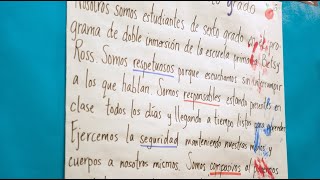 grado
Nosotros somos estudiantes de sexto grado pro-
grama de doble inmersión de la escuela primaria Betsy
Ross. Somos respetuosos porque escuchamos sin interrumpir
a los que hablan. Somos responsables estando presentes en
clase todos los días y llegando a tiempo listos para
Ejercemos la seguridad manteniendo nuestras manos y
cuerpos a nosotros mismos. Somos compasivos al